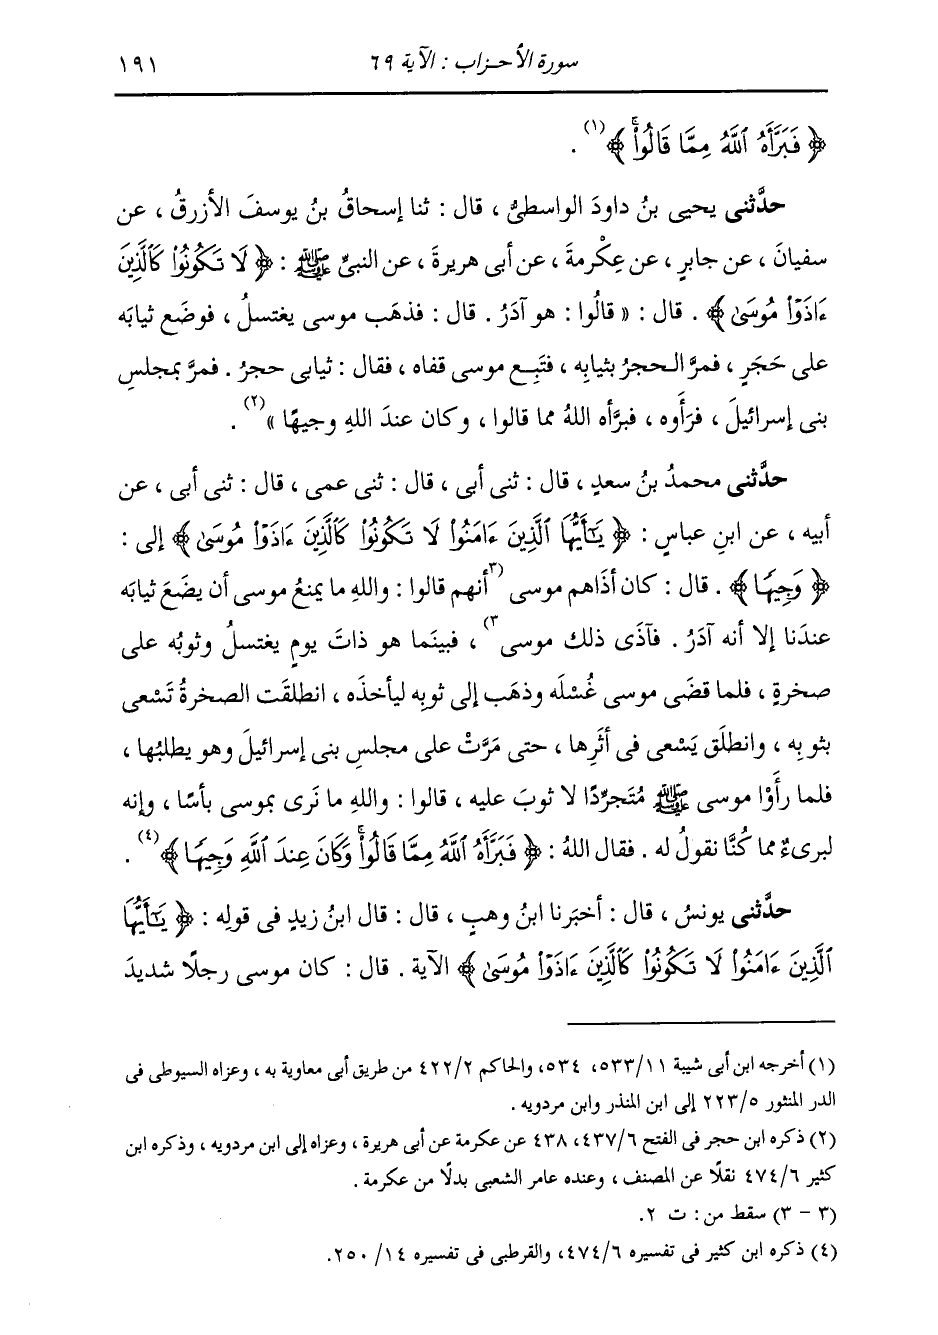 سورة الأحزاب : الآية ٦٩ ١٩١
﴿ فَبَرَّأَهُ ٱللَّهُ مِمَّا قَالُواْۚ ﴾(١) .
حدَّثنى يحيى بنُ داودَ الواسطىُّ ، قال : ثنا إسحاقُ بنُ يوسفَ الأزرقُ ، عن
سفيانَ ، عن جابرٍ ، عن عِكْرمةَ ، عن أبى هريرةَ ، عن النبىِّ ﷺ : ﴿ لَا تَكُونُواْ كَٱلَّذِينَ
ءَاذَوْاْ مُوسَىٰ ﴾ . قال : « قالُوا : هو آدَرُ . قال : فذهَب موسى يغتسلُ ، فوضَع ثيابَه
على حَجَرٍ ، فمرَّ الحجرُ بثيابِه ، فتَبِع موسى قفاه ، فقال : ثيابى حجرُ . فمرَّ بمجلسِ
بنى إسرائيلَ ، فرَأَوه ، فبرَّأه اللهُ مما قالوا ، وكان عندَ اللهِ وجيهًا »(٢) .
حدَّثنى محمدُ بنُ سعدٍ ، قال : ثنى أبى ، قال : ثنى عمى ، قال : ثنى أبى ، عن
أبيه ، عن ابنِ عباسٍ : ﴿ يَٰٓأَيُّهَا ٱلَّذِينَ ءَامَنُواْ لَا تَكُونُواْ كَٱلَّذِينَ ءَاذَوْاْ مُوسَىٰ ﴾ إلى :
﴿ وَجِيهًا ﴾ . قال : كان أذَاهم موسى (٣أنهم قالوا : واللهِ ما يمنعُ موسى أن يضَعَ ثيابَه
عندَنا إلا أنه آدَرُ . فآذَى ذلك موسى٣) ، فبينَما هو ذاتَ يومٍ يغتسلُ وثوبُه على
صخرةٍ ، فلما قضَى موسى غُسْلَه وذهَب إلى ثوبِه ليأخذَه ، انطلقَت الصخرةُ تَسْعى
بثوبِه ، وانطلَق يَسْعى فى أثَرِها ، حتى مَرَّتْ على مجلسِ بنى إسرائيلَ وهو يطلبُها ،
فلما رأَوْا موسى ﷺ مُتَجرِّدًا لا ثوبَ عليه ، قالوا : واللهِ ما نَرى بموسى بأسًا ، وإنه
لبرىءٌ مما كُنَّا نقولُ له . فقال اللهُ : ﴿ فَبَرَّأَهُ ٱللَّهُ مِمَّا قَالُواْۚ وَكَانَ عِندَ ٱللَّهِ وَجِيهًا ﴾(٤) .
حدَّثنى يونسُ ، قال : أخبَرنا ابنُ وهبٍ ، قال : قال ابنُ زيدٍ فى قولِه : ﴿ يَٰٓأَيُّهَا
ٱلَّذِينَ ءَامَنُواْ لَا تَكُونُواْ كَٱلَّذِينَ ءَاذَوْاْ مُوسَىٰ ﴾ الآية . قال : كان موسى رجلًا شديدَ
(١) أخرجه ابن أبى شيبة ٥٣٣/١١، ٥٣٤، والحاكم ٤٢٢/٢ من طريق أبى معاوية به ، وعزاه السيوطى فى
الدر المنثور ٢٢٣/٥ إلى ابن المنذر وابن مردويه .
(٢) ذكره ابن حجر فى الفتح ٤٣٧/٦، ٤٣٨ عن عكرمة عن أبى هريرة ، وعزاه إلى ابن مردويه ، وذكره ابن
كثير ٤٧٤/٦ نقلًا عن المصنف ، وعنده عامر الشعبى بدلًا من عكرمة .
(٣ - ٣) سقط من : ت ٢.
(٤) ذكره ابن كثير فى تفسيره ٤٧٤/٦، والقرطبى فى تفسيره ٢٥٠/١٤.